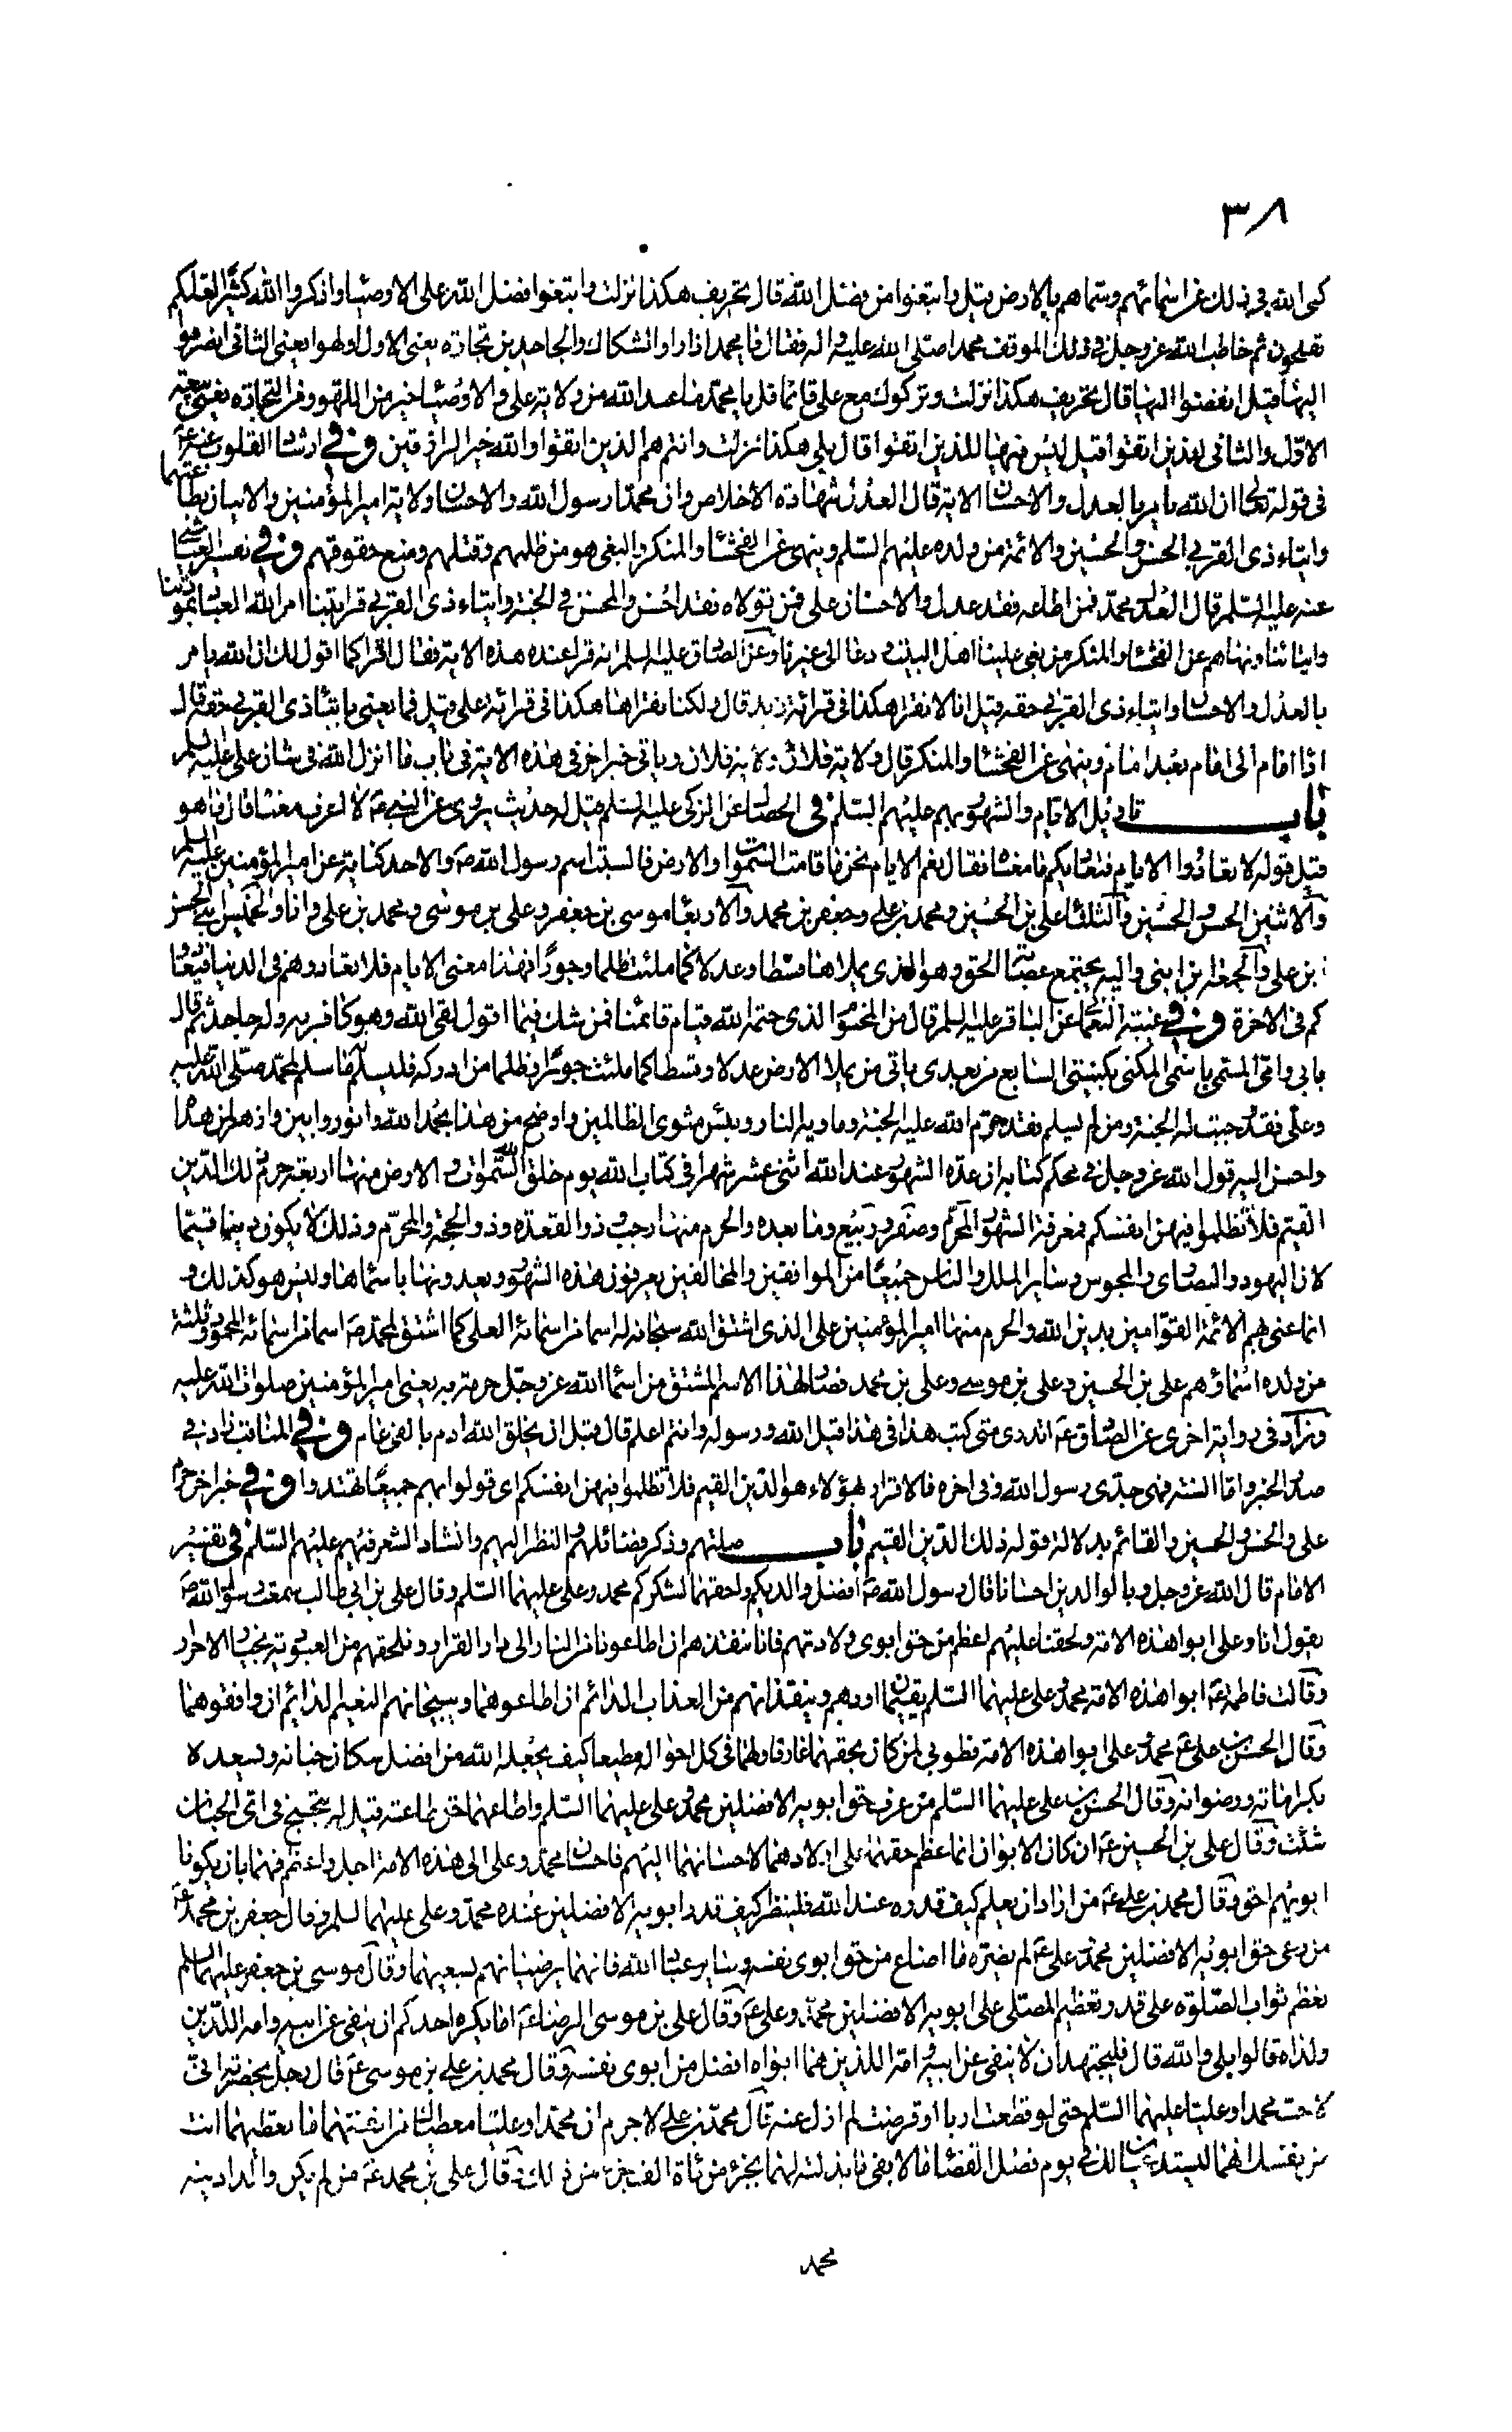 ٣٨
كنى الله في ذلك عن اسمائهم وسماهم بالارض قيل وابتغوا من فضل الله قال تحريف هكذا نزلت وابتغوا فضل الله على الاوصياء واذكروا الله كثيرا لعلكم
تفلحون ثم خاطب الله عز وجل في ذلك الموقف محمدا صلى الله عليه واله فقال يا محمد اذا راوا الشكاك والجاحدين تجارة يعنى الاول او لهوا يعنى الثانى انصرفوا
اليها قيل انفضوا اليها قال تحريف هكذا نزلت وتركوك مع على قائما قل يا محمد ما عند الله من ولاية على والاوصياء خير من اللهو ومن التجارة يعنى بيعة
الاول والثانى للذين اتقوا قيل ليس فيها للذين اتقوا قال بلى هكذا نزلت وانتم هم الذين اتقوا والله خير الرازقين و في ارشاد القلوب عنه ع
في قوله تعالى ان الله يامر بالعدل والاحسان الاية قال العدل شهادة الاخلاص وان محمدا رسول الله والاحسان ولاية امير المؤمنين والاتيان بطاعتهما
وايتاء ذى القربى الحسن والحسين والائمة من ولده عليهم السلم وينهى عن الفحشاء والمنكر والبغى هو من ظلمهم وقتلهم ومنع حقوقهم و في تفسير العياشي
عنه عليه السلم قال العدل محمد فمن اطاعه فقد عدل والاحسان على فمن تولاه فقد احسن والمحسن في الجنة وايتاء ذى القربى قرابتنا امر الله العباد بمودتنا
وايتائنا ونهاهم عن الفحشاء والمنكر من بغى علينا اهل البيت ودعا الى غيرنا وعن الصادق عليه السلم انه قرا عنده هذه الاية فقال اقرا كما اقول لك ان الله يامر
بالعدل والاحسان وايتاء ذى القربى حقه قيل انا لا نقرا هكذا في قرائة زيد قال ولكنا نقراها هكذا في قرائة على قيل فما يعنى بايتاء ذى القربى حقه قال
اداء امام الى امام بعد امام وينهى عن الفحشاء والمنكر قال ولاية فلان ولاية فلان وياتى خبر اخر في هذه الاية في باب ما انزل الله في شان على عليه السلم
باب تاويل الايام والشهور بهم عليهم السلم في الخصال عن الزكى عليه السلم قيل له حديث يروى عن النبي ص لا اعرف معناه قال وما هو
قيل قوله لا تعادوا الايام فتعاديكم ما معناه فقال نعم الايام نحن ما قامت السموات والارض فالسبت اسم رسول الله ص والاحد كناية عن امير المؤمنين عليه السلم
والاثنين الحسن والحسين والثلثا على بن الحسين ومحمد بن على وجعفر بن محمد والاربعا موسى بن جعفر وعلى بن موسى ومحمد بن على وانا والخميس ابنى الحسن
بن على والجمعة ابن ابنى واليه يجتمع عصابة الحق وهو الذى يملاها قسطا وعدلا كما ملئت ظلما وجورا فهذا معنى الايام فلا تعادوهم في الدنيا فيعادو
كم في الاخرة و في غيبة النعمانى عن الباقر عليه السلم قال من المحتوم الذى حتمه الله قيام قائمنا فمن شك فيما اقول لقى الله وهو كافر به وله جاحد ثم قال
بابى وامى المسمى باسمى المكنى بكنيتى السابع من بعدى ياتى من يملا الارض عدلا وقسطا كما ملئت جورا وظلما من ادركه فليسلم له ما سلم لمحمد صلى الله عليه
وعلى فقد وجبت له الجنة ومن لم يسلم فقد حرم الله عليه الجنة وماويه النار وبئس مثوى الظالمين واوضح من هذا بحمد الله وانور وابين وازهر لمن هداه
واحسن اليه قول الله عز وجل في محكم كتابه ان عدة الشهور عند الله اثنى عشر شهرا في كتاب الله يوم خلق الله السموات والارض منها اربعة حرم ذلك الدين
القيم فلا تظلموا فيهن انفسكم فمعرفة الشهور المحرم وصفر وربيع وما بعده والحرم منها رجب وذو القعدة وذو الحجة والمحرم وذلك لا يكون دينا قيما
لان اليهود والنصارى والمجوس وساير الملل والناس جميعا من الموافقين والمخالفين يعرفون هذه الشهور ويعدونها باسمائها وليس هو كذلك و
انما عنى بهم الائمة القوامين بدين الله والحرم منها امير المؤمنين على الذى اشتق الله سبحانه له اسما من اسمائه العلى كما اشتق لمحمد ص اسما من اسمائه المحمود وثلثة
من ولده اسماؤهم على بن الحسين وعلى بن موسى وعلى بن محمد فصار لهذا الاسم المشتق من اسماء الله عز وجل حرمة به يعنى امير المؤمنين صلوات الله عليه
وزاد في رواية اخرى عن الصادق ع اتدرى متى كتب هذا في هذا قيل الله ورسوله وانتم اعلم قال قبل ان يخلق الله ادم بالفى عام و في المناقب زاد في
صدر الخبر واما السنة فهى جدى رسول الله وفى اخره فالاقرار بهؤلاء هو الدين القيم فلا تظلموا فيهن انفسكم اى قولوا بهم جميعا تهتدوا و في خبر اخر حرم
على والحسن والحسين والقائم بدلالة قوله ذلك الدين القيم باب صلتهم وذكر فضائلهم والنظر اليهم وانشاد الشعر فيهم عليهم السلم في تفسير
الامام قال الله عز وجل وبالوالدين احسانا قال رسول الله ص افضل والديكم واحقهما لشكركم محمد وعلى عليهما السلم وقال على بن ابى طالب سمعت رسول الله ص
يقول انا وعلى ابوا هذه الامة ولحقنا عليهم اعظم من حق ابوى ولادتهم فانا ننقذهم ان اطاعونا من النار الى دار القرار ونلحقهم من العبودية بخيار الاحرار
وقالت فاطمة ع ابوا هذه الامة محمد وعلى عليهما السلم يقيمان اودهم وينقذانهم من العذاب الدائم ان اطاعوهما ويبيحانهم النعيم الدائم ان وافقوهما
وقال الحسن بن على ع محمد وعلى ابوا هذه الامة فطوبى لمن كان بحقهما عارفا ولهما في كل احواله مطيعا كيف يجعله الله من افضل سكان جنانه ويسعده
بكراماته ورضوانه وقال الحسين بن على عليهما السلم من عرف حق ابويه الافضلين محمد وعلى عليهما السلم واطاعهما حق طاعته قيل له تبحبح في اى الجنان
شئت وقال على بن الحسين ع ان كان الابوان انما عظم حقهما على اولادهما لاحسانهما اليهم فاحسان محمد وعلى الى هذه الامة اجل واعظم فهما بان يكونا
ابويهم احق وقال محمد بن على ع من اراد ان يعلم كيف قدره عند الله فلينظر كيف قدر ابويه الافضلين عنده محمد وعلى عليهما السلم وقال جعفر بن محمد ع
من رعى حق ابويه الافضلين محمد وعلى ع لم يضره ما اضاع من حق ابوى نفسه وساير عباد الله فانهما يرضيانهم بسعيهما وقال موسى بن جعفر عليهما السلم
يعظم ثواب الصلوة على قدر تعظيم المصلى على ابويه الافضلين محمد وعلى ع وقال على بن موسى الرضا ع اما يكره احدكم ان ينفى عن ابيه وامه اللذين
ولداه قالوا بلى والله قال فليجتهد ان لا ينفى عن ابيه وامه اللذين هما ابواه افضل من ابوى نفسه وقال محمد بن على بن موسى ع قال رجل بحضرته انى
لاحب محمدا وعليا عليهما السلم حتى لو قطعت اربا او قرضت لم ازل عنه قال محمد بن على لا جرم ان محمدا وعليا معطياك من انفسهما ما تعطيهما انت
من نفسك انهما ليستدعيان لك في يوم فصل القضاء ما لا يفى ما بذلته لهما بجزء من مائة الف جزء من ذلك وقال على بن محمد ع من لم يكن والدا دينه
محمد